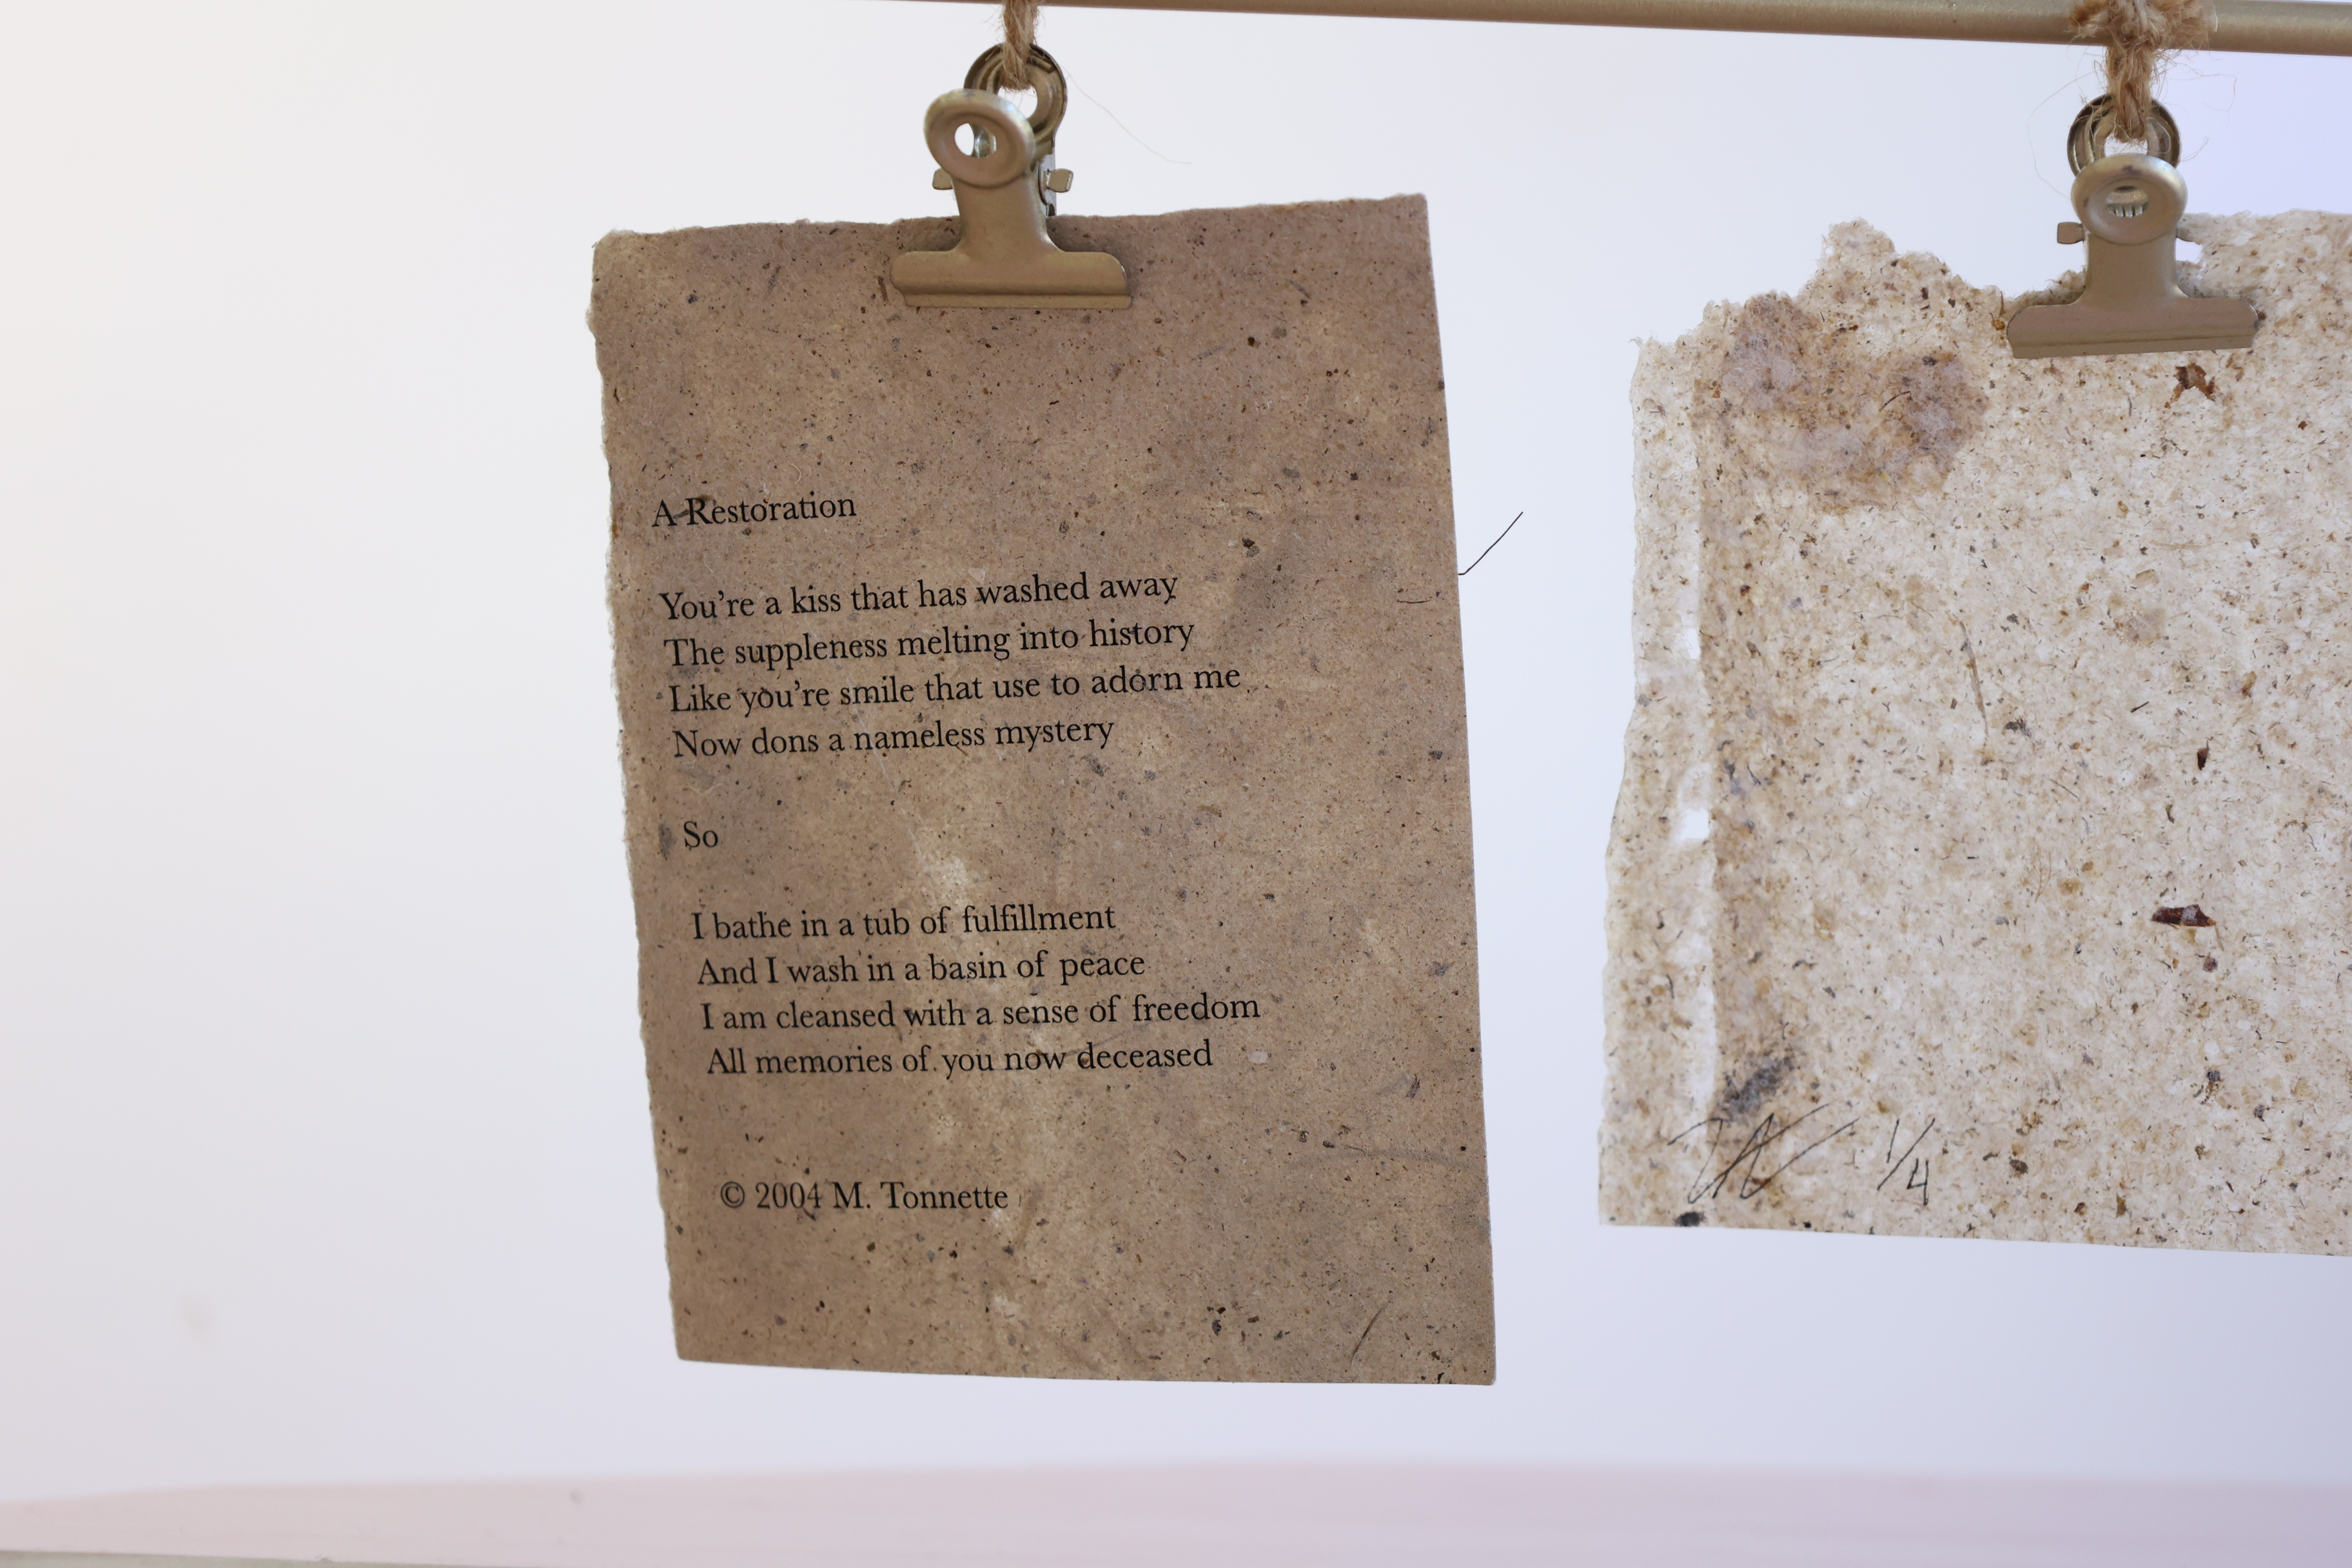 A Restoration
You’re a kiss that has washed away
The suppleness melting into history
Like you’re smile that use to adorn me
Now dons a nameless mystery
So
I bathe in a tub of fulfillment
And I wash in a basin of peace
I am cleansed with a sense of freedom
All memories of you now deceased
© 2004 M. Tonnette
1/4